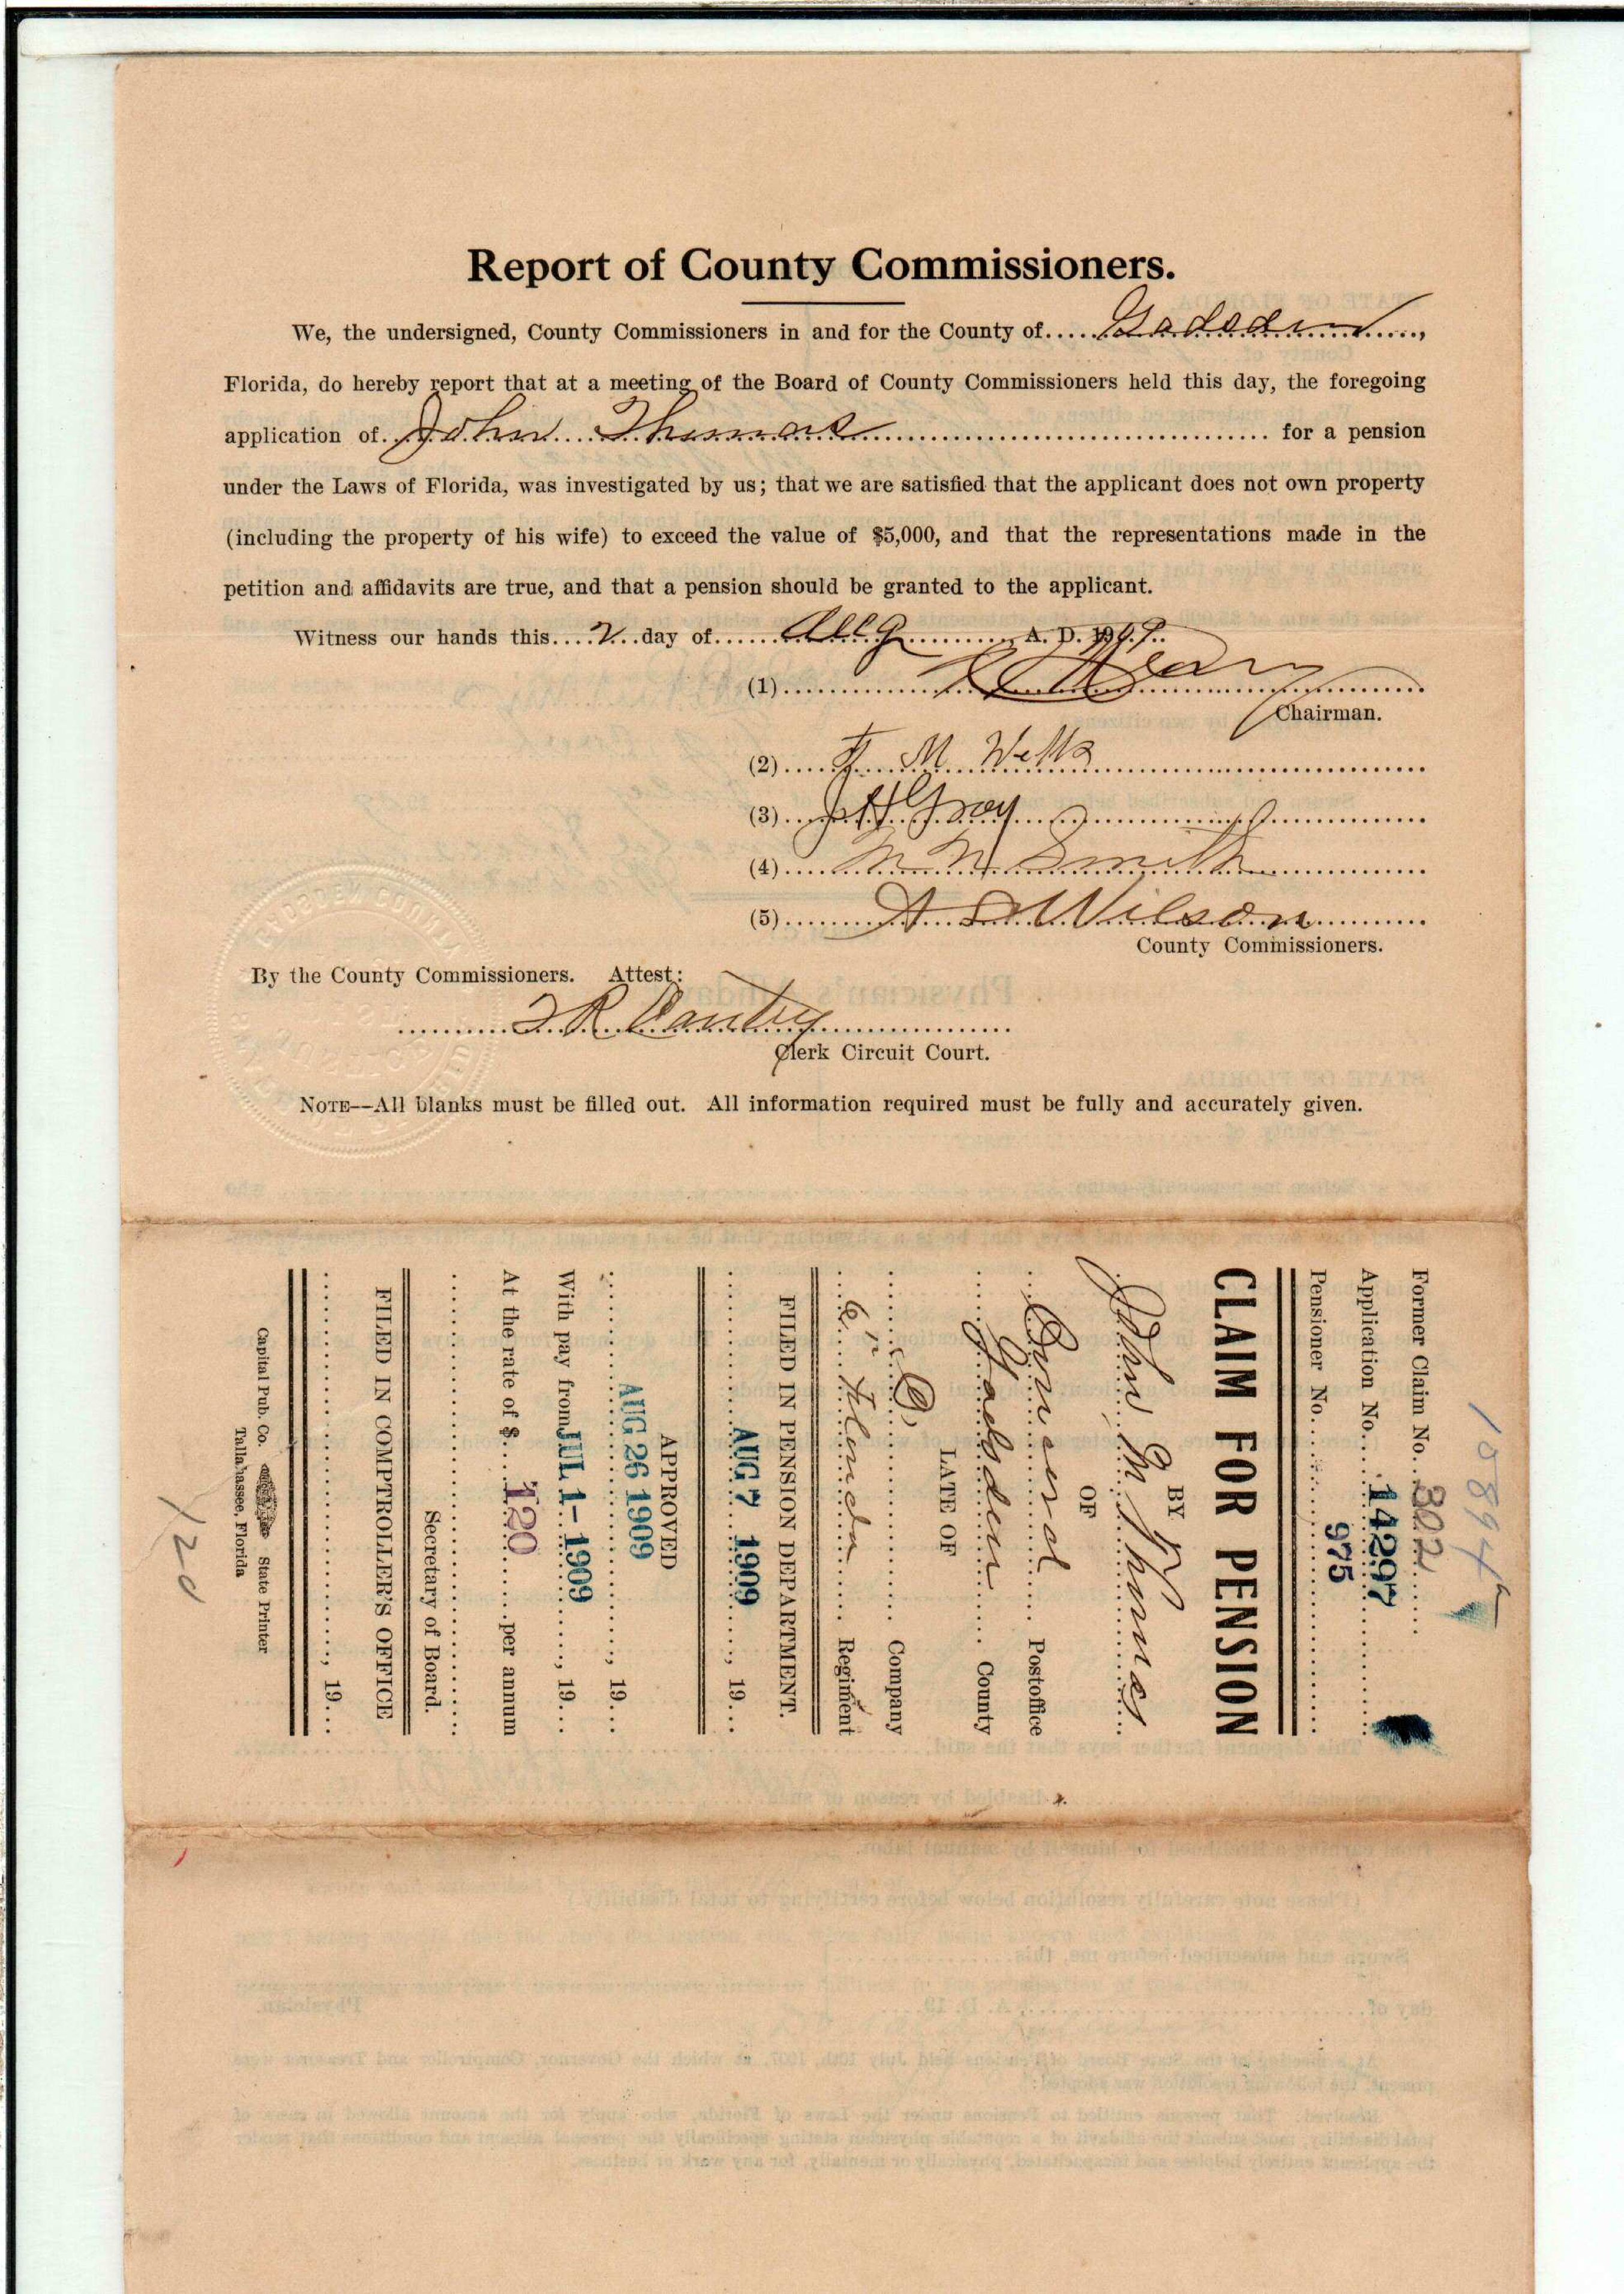 Report of County Commissioners.
We, the undersigned, County Commissioners in and for the County of.....Gadsden.....,
Florida, do hereby report that at a meeting of the Board of County Commissioners held this day, the foregoing
application of...John Thomas.......... for a pension
under the Laws of Florida, was investigated by us; that we are satisfied that the applicant does not own property
(including the property of his wife) to exceed the value of $5,000, and that the representations made in the
petition and affidavits are true, and that a pension should be granted to the applicant.
Witness our hands this....2...day of......Aug..........., A. D. 1909..
(1)..........
Chairman.
(2)..... M. Wells..........
(3)....J H Gray..........
(4)..... Smith..........
(5)..........Wilson..........
County Commissioners.
By the County Commissioners. Attest:
..........
Clerk Circuit Court.
NOTE—All blanks must be filled out. All information required must be fully and accurately given.
Former Claim No...302......
Application No....14297..........
Pensioner No......975..........
CLAIM FOR PENSION
BY
John M Thomas
OF
.......... Postoffice
....Gadsden.... County
LATE OF
....C,.......... Company
...6th Florida..... Regiment
FILED IN PENSION DEPARTMENT.
..........AUG 7 1909......, 19...
APPROVED
..........AUG 26 1909.........., 19...
With pay from JUL 1 - 1909........, 19...
At the rate of $....120..........per annum
..........
Secretary of Board.
FILED IN COMPTROLLER'S OFFICE
.........., 19...
Capital Pub. Co. State Printer
Tallahassee, Florida
120